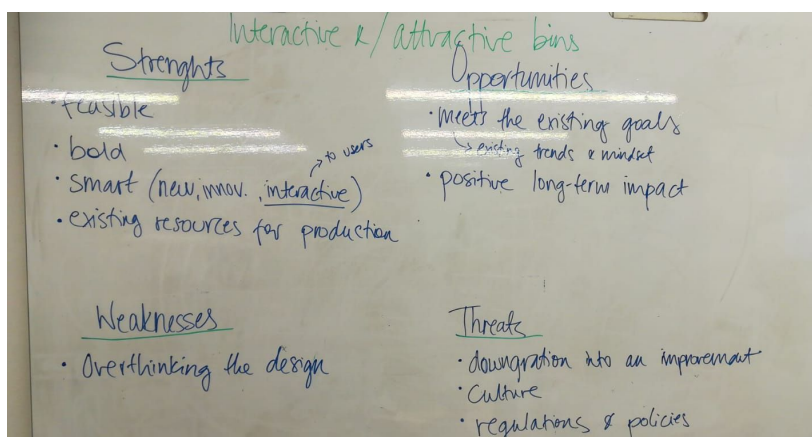 Interactive & / attractive bins
Strenghts
• feasible
• bold
• smart (new, innov., interactive)
→ to users
• existing resources for production
Opportunities
• meets the existing goals
↳ existing trends & mindset
• positive long-term impact
Weaknesses
• Overthinking the design
Threats
• downgration into an improvement
• Culture
• regulations & policies